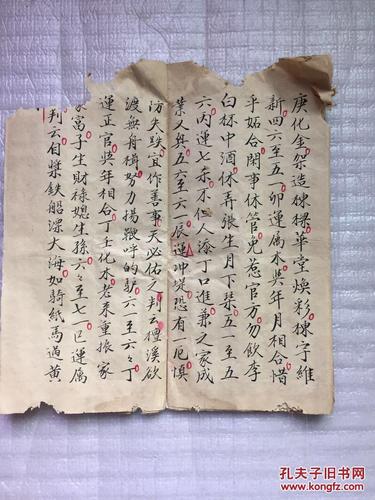 庚化金架造棟樑華堂煥彩棟宇維
新四六至五一卯運属水與年月相合惜
乎妬合閑事休管免惹官方勿飲李
白杯中酒休弄張生月下琴五一至五
六丙運七杀不但人添丁口進兼之家成
業人興五六至六一辰運冲堤恐有一厄慎
防失跌宜作善事天必佑之判云檀溪欲
渡無舟楫努力揚鞭呼的馿六一至六六丁
運正官與年相合丁壬化水老来重振家
家富子生財禄媳生孫六六至七一巳運属
判云自槳鉄船深大海如騎紙馬過黄
孔夫子旧书网
www.kongfz.com